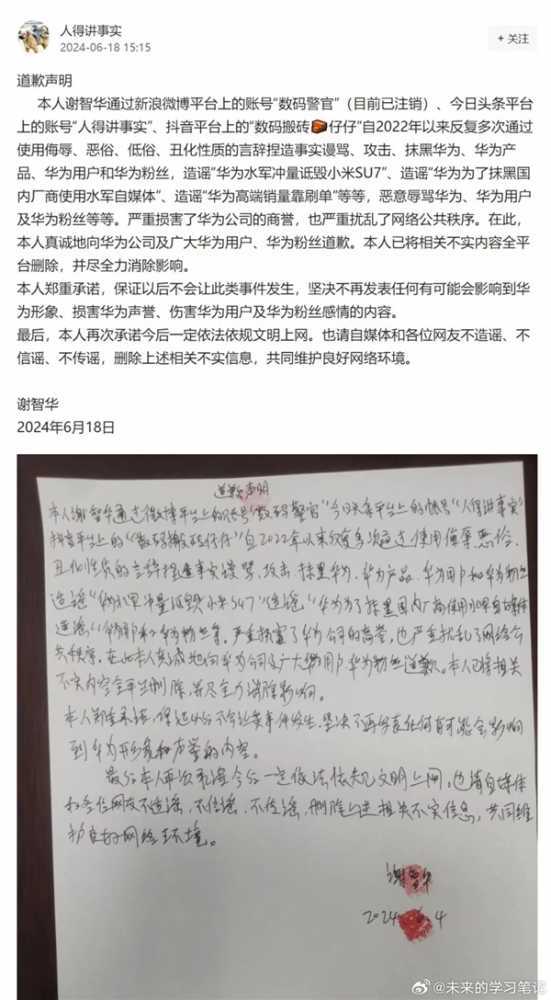 人得讲事实
2024-06-18 15:15
+ 关注
道歉声明
本人谢智华通过新浪微博平台上的账号“数码警官”（目前已注销）、今日头条平台
上的账号“人得讲事实”、抖音平台上的“数码搬砖🧱仔仔”自2022年以来反复多次通过
使用侮辱、恶俗、低俗、丑化性质的言辞捏造事实谩骂、攻击、抹黑华为、华为产
品、华为用户和华为粉丝，造谣“华为水军冲量诋毁小米SU7”、造谣“华为为了抹黑国
内厂商使用水军自媒体”、造谣“华为高端销量靠刷单”等等，恶意辱骂华为、华为用户
及华为粉丝等等。严重损害了华为公司的商誉，也严重扰乱了网络公共秩序。在此，
本人真诚地向华为公司及广大华为用户、华为粉丝道歉。本人已将相关不实内容全平
台删除，并尽全力消除影响。
本人郑重承诺，保证以后不会让此类事件发生，坚决不再发表任何有可能会影响到华
为形象、损害华为声誉、伤害华为用户及华为粉丝感情的内容。
最后，本人再次承诺今后一定依法依规文明上网。也请自媒体和各位网友不造谣、不
信谣、不传谣，删除上述相关不实信息，共同维护良好网络环境。
谢智华
2024年6月18日
道歉声明
本人谢智华通过微博平台上的账号“数码警官”今日头条平台上的账号“人得讲事实”
抖音平台上的“数码搬砖仔仔”自2022年以来反复多次通过使用侮辱恶俗、
丑化性质的言辞捏造事实谩骂、攻击、抹黑华为、华为产品、华为用户和华为粉丝
造谣“华为水军冲量诋毁小米SU7”造谣“华为为了抹黑国内厂商使用水军自媒体
造谣 华为粉丝等。严重损害了华为公司的商誉，也严重扰乱了网络公
共秩序。在此本人真诚地向华为公司及广大华为用户华为粉丝道歉。本人已将相关
不实内容全平台删除，并尽全力消除影响。
本人郑重承诺，保证以后不会让类事件发生，坚决不再发表任何有可能会影响
到华为形象和声誉的内容。
最后本人再次承诺今后一定依法依规文明上网，也请自媒体
和各位网友不造谣、不信谣、不传谣，删除上述相关不实信息，共同维
护良好网络环境。
谢智华
2024 4
@未来的学习笔记